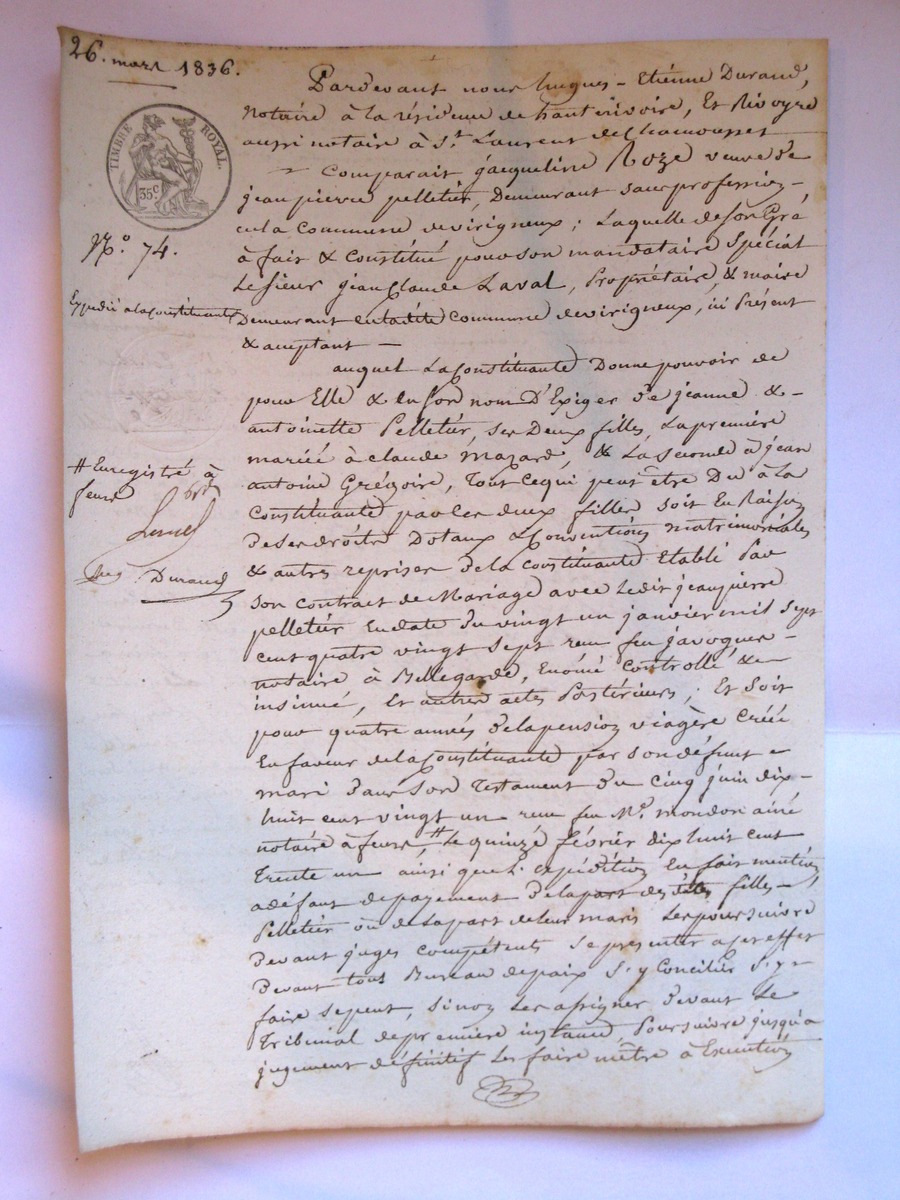 26. mars 1836.
TIMBRE ROYAL.
35c
No. 74.
Expédié à la Constituante
# Enregistré à
feurs
Durand
Pardevant nous hugues-Etienne Durand,
Notaire à la résidence de hauterivoire, Et Rivoyre
aussi notaire à St. Laurent de Chamousset
Comparait jacqueline Roze veuve de
jean pierre pelletier, Demeurant sans profession
en la Commune de virigneux; Laquelle de son Gré
à fait & Constitué pour son mandataire Spécial
Le Sieur jean Claude Laval, Propriétaire, & maire
Demeurant en ladite Commune de virigneux, ici Présent
& acceptant —
auquel La Constituante Donne pouvoir de
pour Elle & en son nom D'Exiger de jeanne &
antoinette Pelletier, ses Deux filles, La première
mariée à claude mazard, & La seconde à jean
antoine Grégoire, Tout ce qui peut être Du à La
Constituante par les deux filles soit En Raison
de ses droits Dotaux & Conventions matrimoniales
& autres reprises de la constituante Etabli Par
son contract de Mariage avec Ledit jean pierre
pelletier En date du vingt un janvier mil sept
cent quatre vingt sept reçu feu javogues
notaire à Bellegarde, Enómé Controllé &
insinué, Et autres actes Postérieurs; Et Soit
pour quatre années de la pension viagère Créée
En faveur de la Constituante par son défunt
mari dans son Testament du Cinq juin dix-
huit cent vingt un reçu feu Me. mondon ainé
notaire à feurs, # Le quinze février dix huit cent
trente un ainsi que L'expédition En fait mention
a défaut de payement de la part des dites filles
Pelletier ou de la part de leur maris Les poursuivre
devant juges compétents se présenter à cet effet
devant tous Bureau de paix s'y Concilier s'y
faire se peut, sinon Les assigner devant Le
Tribunal de première instance, Poursuivre jusqu'a
jugement définitif Les faire mettre à Exécution